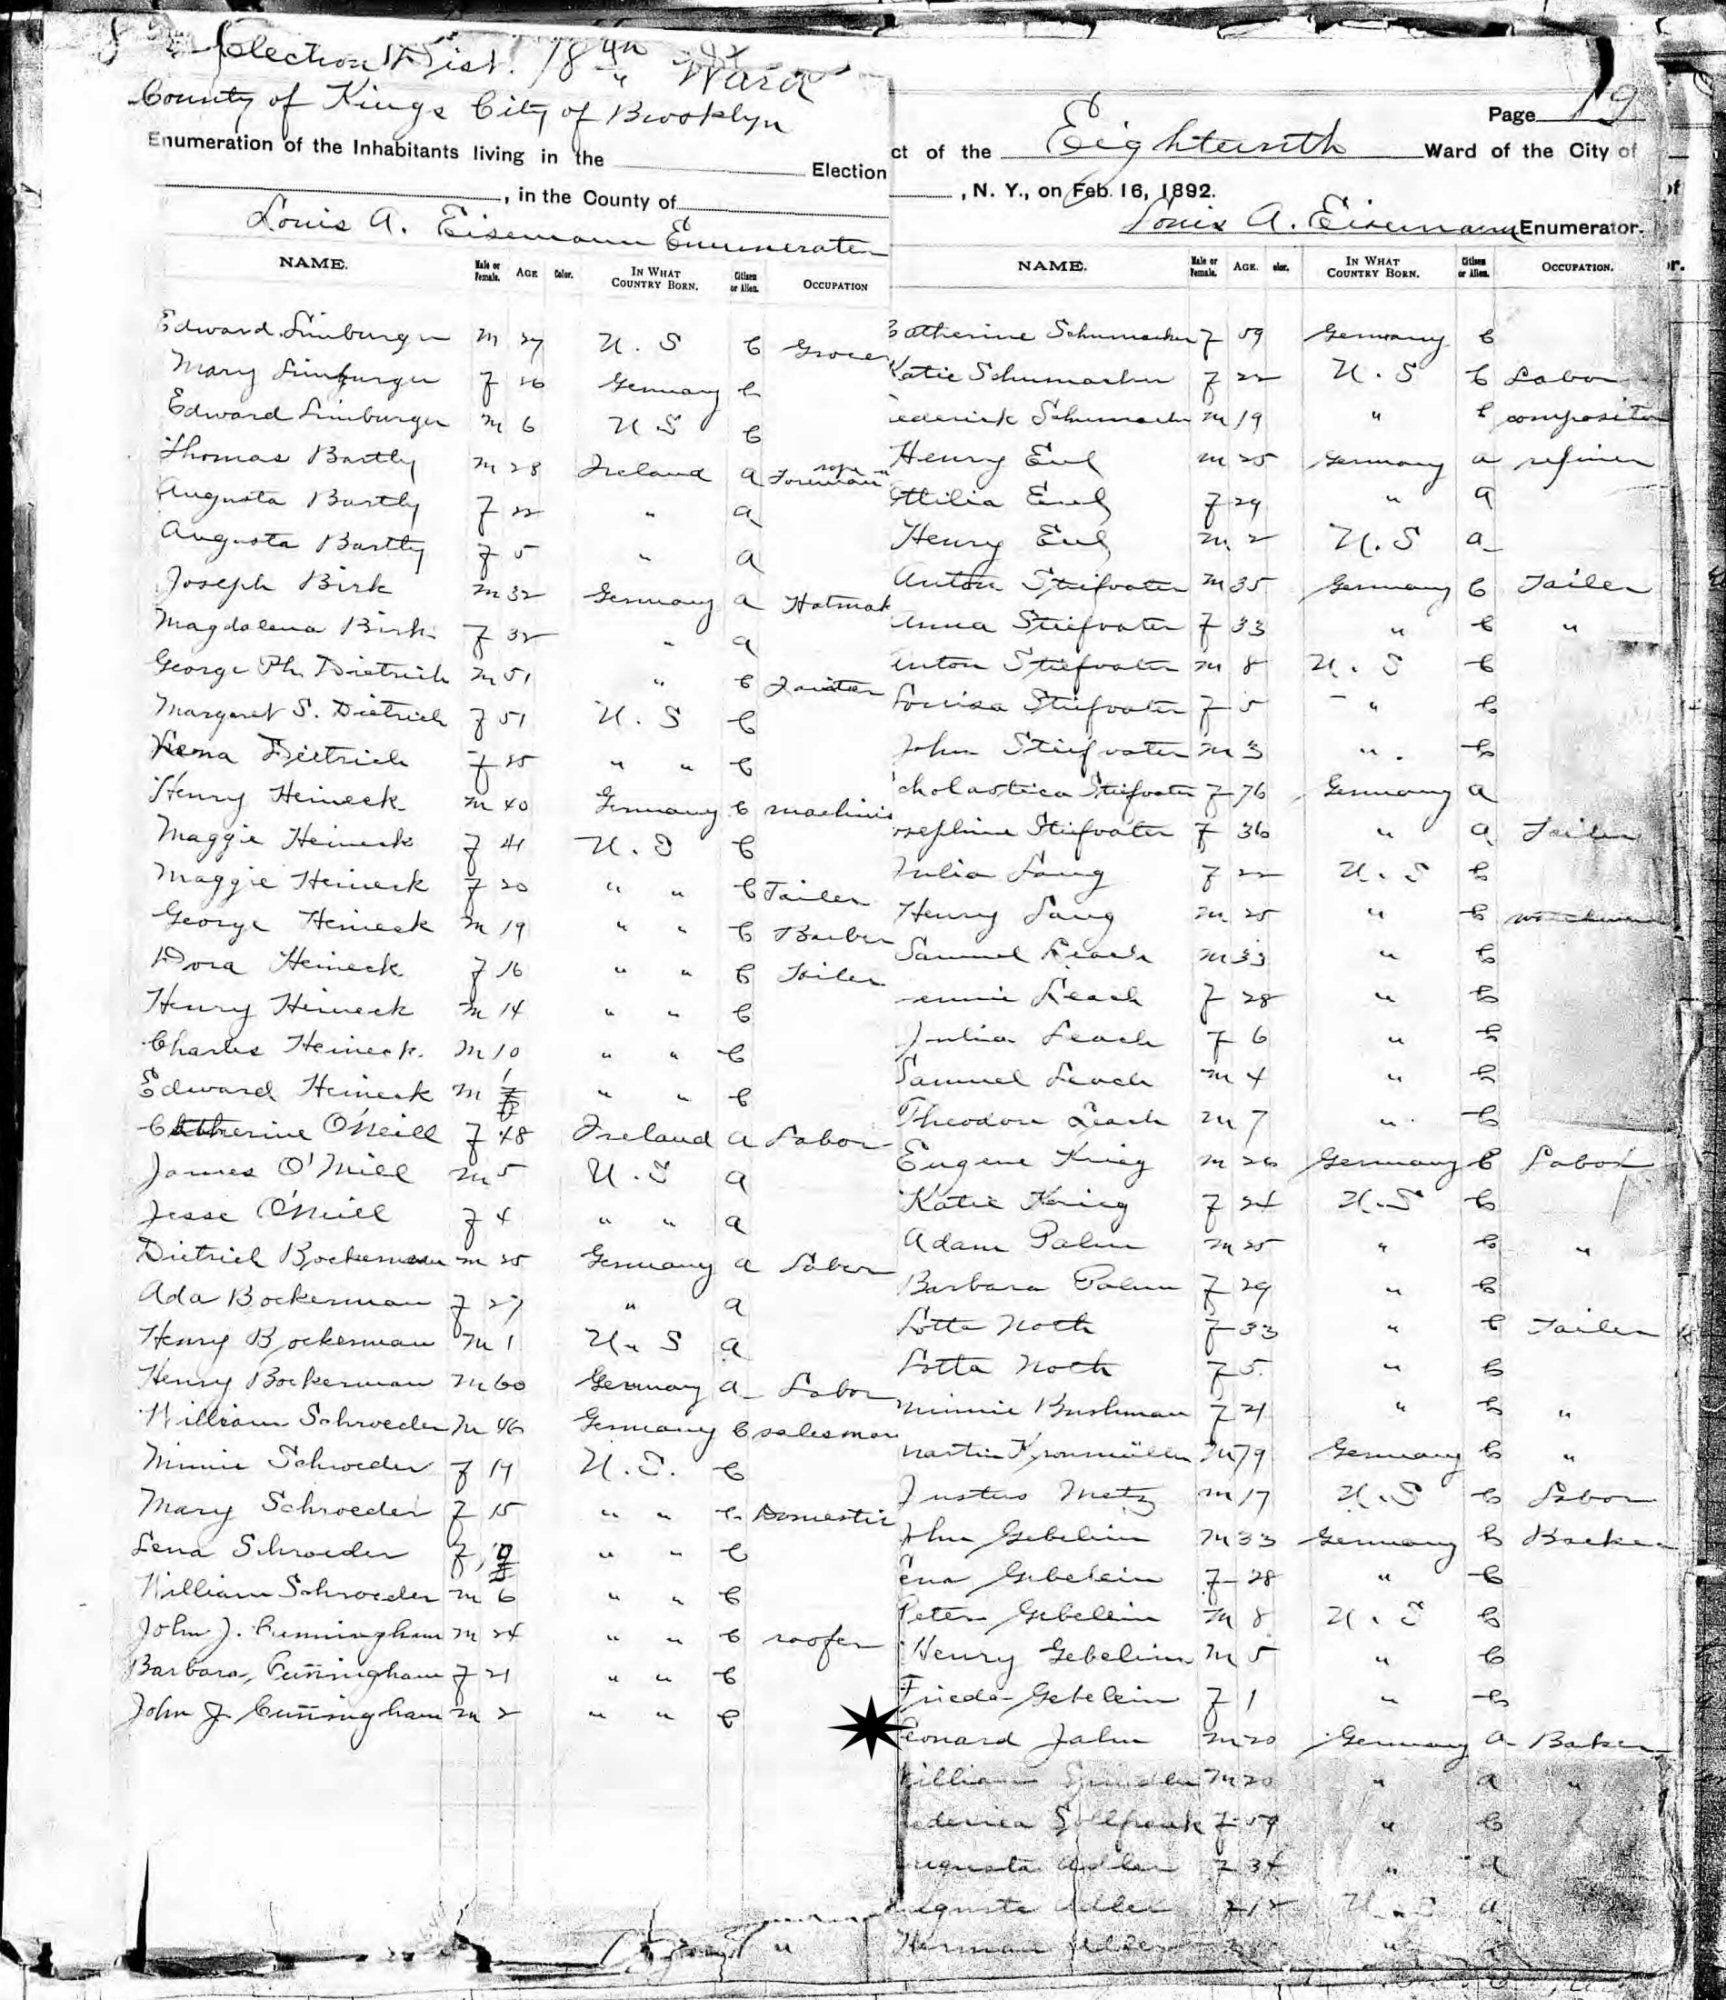 Election Dist. 18th Ward
County of Kings City of Brooklyn
Enumeration of the Inhabitants living in the Election
, in the County of
Louis A. Eisemann Enumerator
NAME. Male or Female. AGE Color. IN WHAT COUNTRY BORN. Citizen or Alien. OCCUPATION
Edward Limburger m 27 U. S C Grocer
Mary Limburger f 26 Germany C
Edward Limburger m 6 U S C
Thomas Bartly m 28 Ireland a Foreman
Augusta Bartly f 22 " a
Augusta Bartly f 5 " a
Joseph Birk m 32 Germany a Hatmak
Magdalena Birk f 32 " a
George Ph. Dietrich m 51 " C Janiter
Margaret S. Dietrich f 51 U. S C
Lena Dietrich f 25 " " C
Henry Heineck m 40 Germany C machinis
Maggie Heineck f 41 U. S C
Maggie Heineck f 20 " " C Tailer
George Heineck m 19 " " C Barber
Dora Heineck f 16 " " C Tailer
Henry Heineck m 14 " " C
Charles Heineck. m 10 " " C
Edward Heineck m " " C
Catherine O'Neill f 48 Ireland a Labor
James O'Neill m 5 U. S a
Jesse O'Neill f 4 " " a
Dietrich Bockerman m 25 Germany a Labor
Ada Bockerman f 27 " a
Henry Bockerman m 1 U. S a
Henry Bockerman m 60 Germany a Labor
William Schroeder m 46 Germany C salesman
Minnie Schroeder f 19 U. S. C
Mary Schroeder f 15 " " C Domestic
Lena Schroeder f " " C
William Schroeder m 6 " " C
John J. Cunningham m 24 " " C roofer
Barbara Cunningham f 21 " " C
John J. Cunningham m 2 " " C
Page 19
ct of the Eighteenth Ward of the City of
, N. Y., on Feb. 16, 1892.
Louis A. Eisemann Enumerator.
NAME. Male or Female. AGE. olor. IN WHAT COUNTRY BORN. Citizen or Alien. OCCUPATION.
Catherine Schumacher f 59 Germany C
Katie Schumacher f 22 U. S C Labor
ederick Schumacher m 19 " C compositor
Henry Eul m 25 Germany a refiner
ttilia Eul f 29 " a
Henry Eul m 2 U. S a
Anton Stiefvater m 35 Germany C Tailer
Anna Stiefvater f 33 " C "
Anton Stiefvater m 8 U. S C
Louisa Stiefvater f 5 " C
John Stiefvater m 3 " C
cholastica Stiefvater f 76 Germany a
osephine Stiefvater f 36 " a Tailer
Julia Lang f 22 U. S C
Henry Lang m 25 " C watchman
Samuel Leach m 33 " C
ennie Leach f 28 " C
Julia Leach f 6 " C
Samuel Leach m 4 " C
Theodore Leach m 7 " C
Eugene Krieg m 26 Germany C Labor
Katie Krieg f 24 U. S C
Adam Palm m 25 " C "
Barbara Palm f 29 " C
Lotta Noth f 33 " C Tailer
Lotta Noth f 5 " C
Minnie Bushman f 21 " C "
Martin Kronmüller m 79 Germany C "
Justus Metz m 17 U. S C Labor
John Gebelein m 33 Germany C Backer
Lena Gebelein f 28 " C
Peter Gebelein m 8 U. S C
Henry Gebelein m 5 " C
Frieda Gebelein f 1 " C
Leonard Jahn m 20 Germany a Baker
William m 20 " a "
ederica Sollfrank f 59 " C
ugusta Adler f 34 " a
uguste Adler f 12 U. S a
Herman Adler "